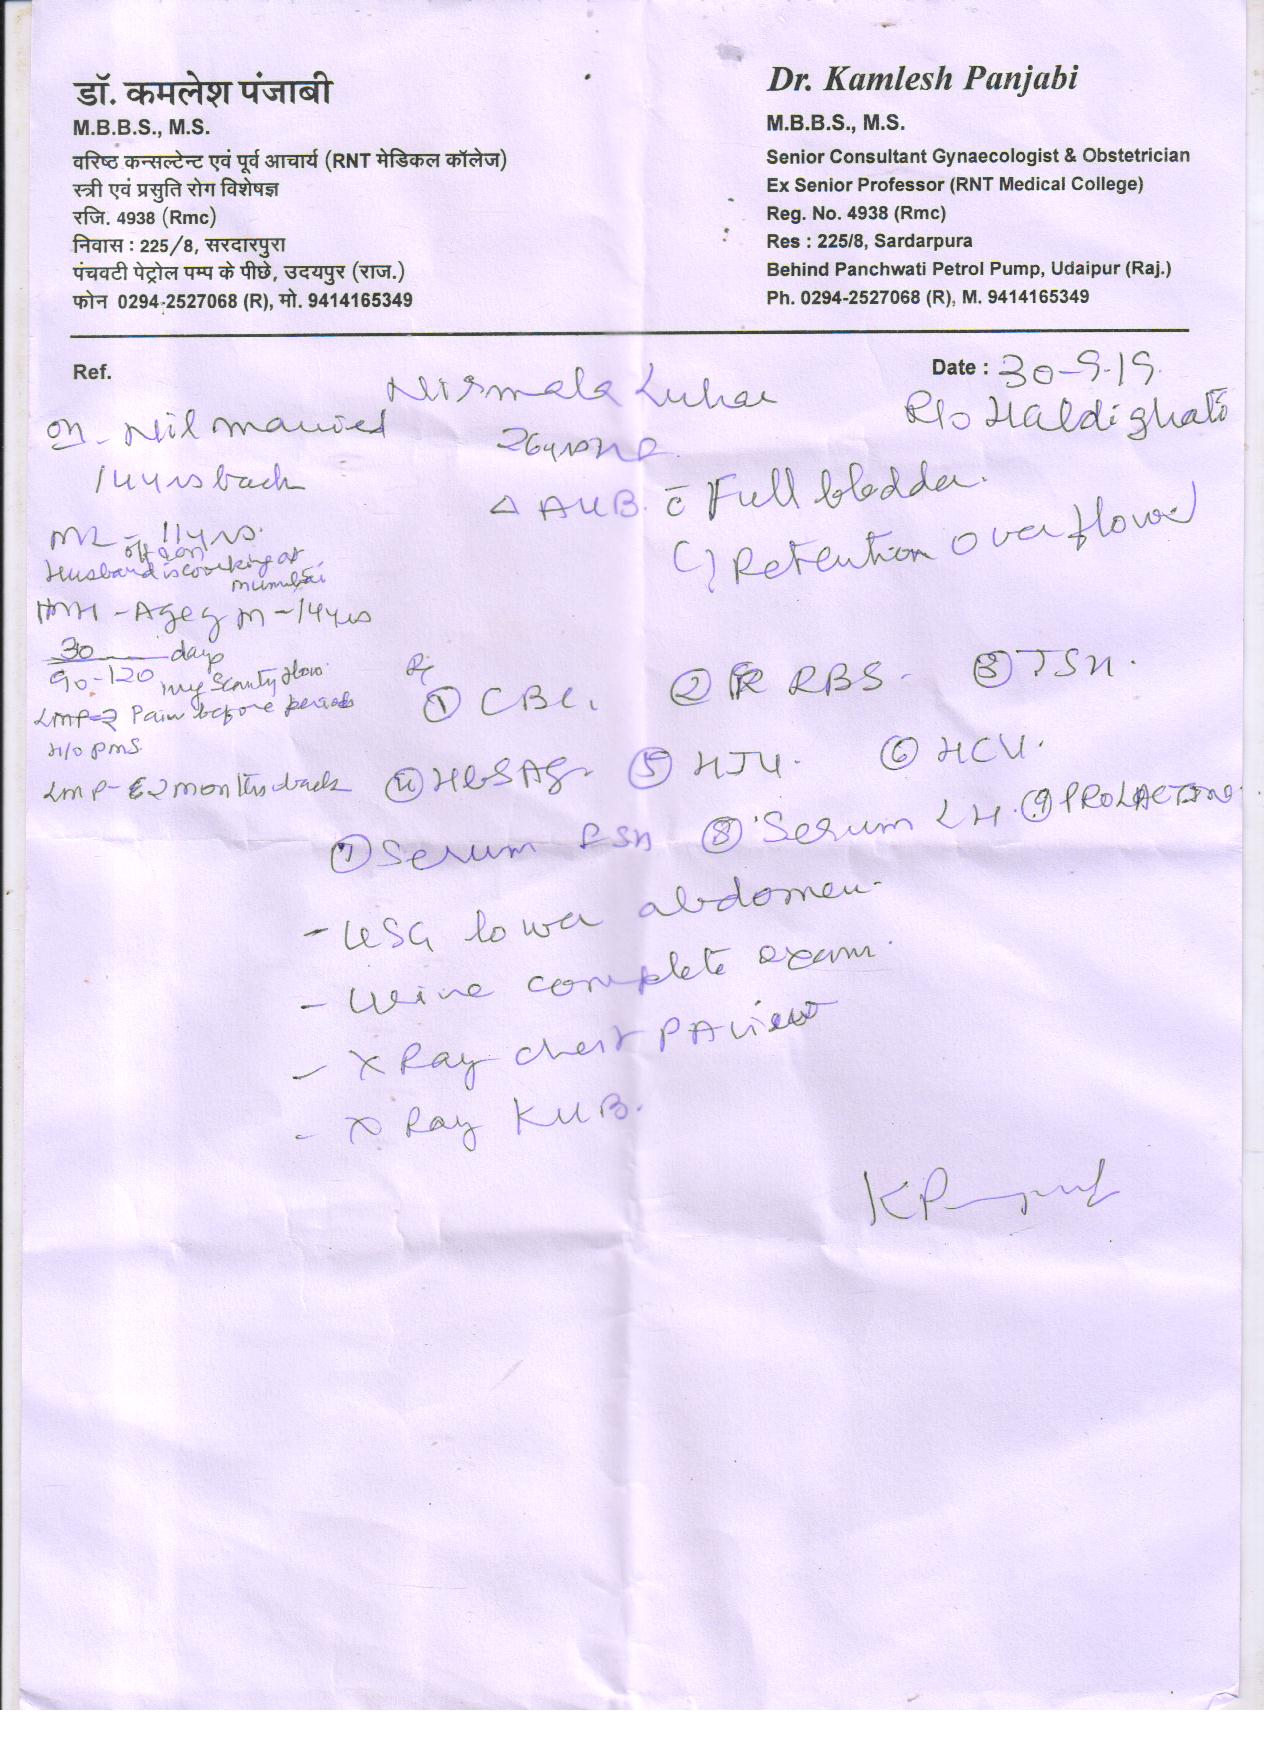 डॉ. कमलेश पंजाबी
M.B.B.S., M.S.
वरिष्ठ कन्सल्टेन्ट एवं पूर्व आचार्य (RNT मेडिकल कॉलेज)
स्त्री एवं प्रसुति रोग विशेषज्ञ
रजि. 4938 (Rmc)
निवास : 225/8, सरदारपुरा
पंचवटी पेट्रोल पम्प के पीछे, उदयपुर (राज.)
फोन 0294-2527068 (R), मो. 9414165349
Dr. Kamlesh Panjabi
M.B.B.S., M.S.
Senior Consultant Gynaecologist & Obstetrician
Ex Senior Professor (RNT Medical College)
Reg. No. 4938 (Rmc)
Res : 225/8, Sardarpura
Behind Panchwati Petrol Pump, Udaipur (Raj.)
Ph. 0294-2527068 (R), M. 9414165349
Ref.
Date : 30-9-19
Nirmala Luhar
R/o Haldighati
OH - Nil married
14yrs back
ML - 11yrs.
Husband is working at
Mumbai
MH - Age of M - 14yrs
30 days
90-120
scanty flow
Pain before periods
H/o PMS
LMP - 2 months back
26yrs
Δ AUB. c̄ Full bladder.
Retention overflow
Rx
① CBC. ② RBS. ③ TSH.
④ HBSAG. ⑤ HIV. ⑥ HCV.
⑦ Serum FSH ⑧ Serum LH. ⑨ PROLACTIN
- USG lower abdomen
- Urine complete exam.
- X Ray chest PA view
- X Ray KUB.